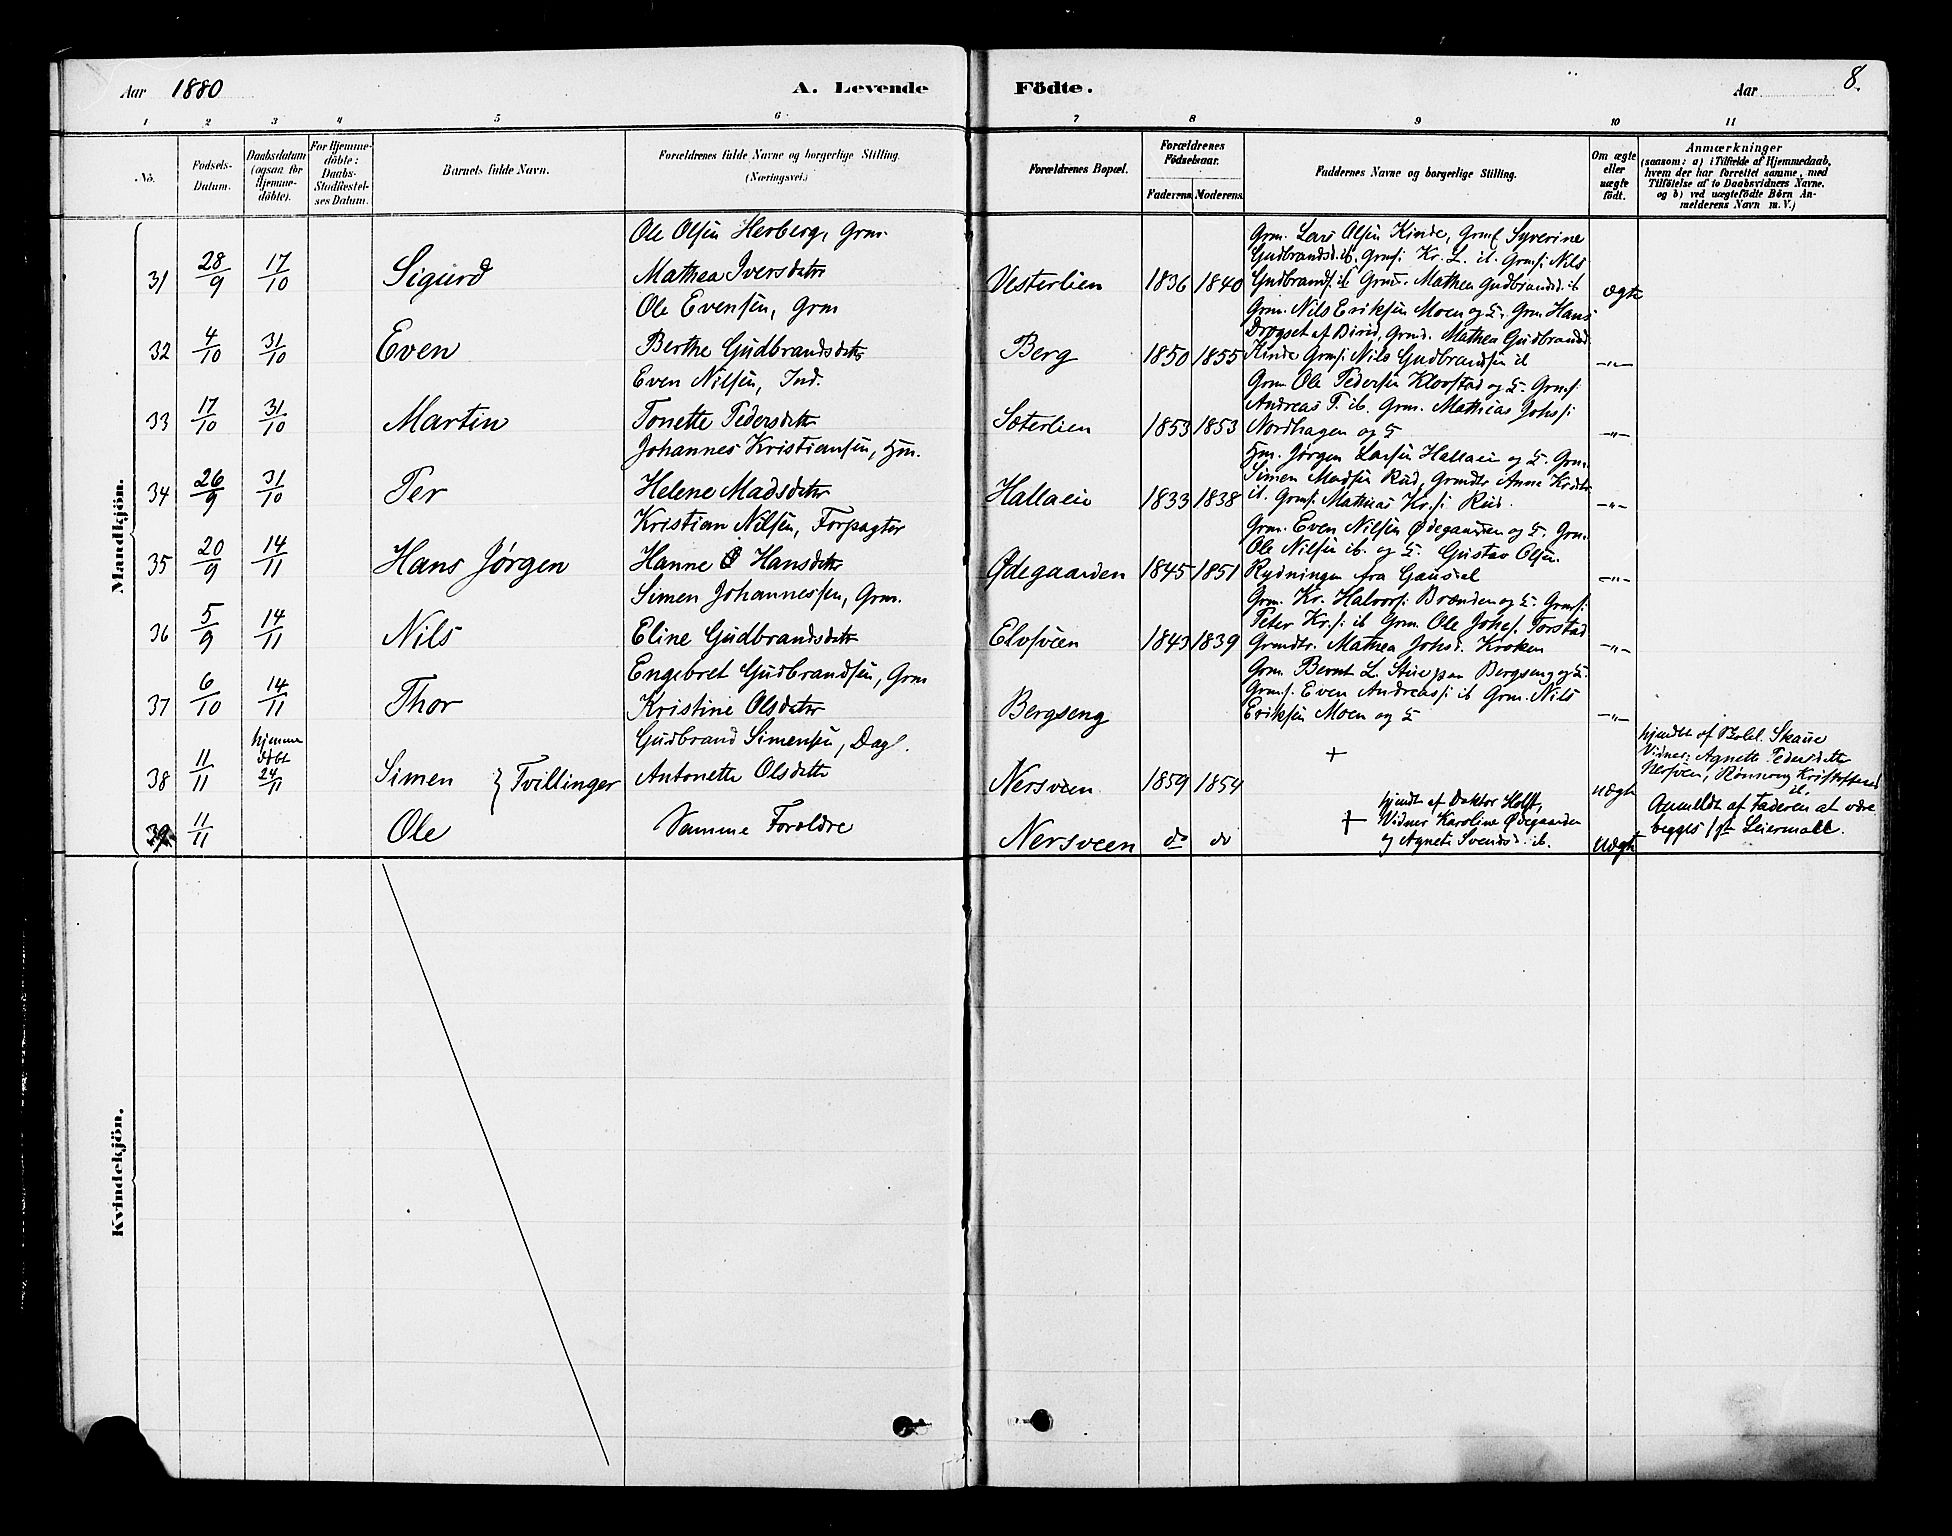 Aar 1880 A. Levende Födte. Aar 8.
1 2 3 4 5 6 7 8 9 10 11
No.
Födsels-Datum.
Daabsdatum (ogsaa for Hjemme-döbte).
For Hjemme-döbte: Daabs-Stadfæstel-ses Datum.
Barnets fulde Navn.
Forældrenes fulde Navne og borgerlige Stilling. (Næringsvei.)
Forældrenes Bopæl.
Forældrenes Födselsaar.
Faderens. Moderens.
Faddernes Navne og borgerlige Stilling.
Om ægte eller uægte födt.
Anmærkninger
(saasom: a) i Tilfælde af Hjemmedaab,
hvem der har forrettet samme, med
Tilföielse af to Daabsvidners Navne,
og b) ved uægtefödte Börn An-
melderens Navn m. V.)
Mandkjön.
31 28/9 17/10 Sigurd
Ole Olsen Herberg, Grm.
Mathea Iversdatter
Vesterlien 1836 1840
Grm. Lars Olsen Kinde, Grmf Syverine
Gudbrandsd. ib. Grmf. Kr. L. ib. Grmf. Nils
Gudbrandf. ib Mathea Gudbrandsd. ib
ægte
32 4/10 31/10 Even
Ole Evensen, Grm
Berthe Gudbrandsdatter
Berg 1850 1855
Grm. Nils Eriksen Moen og Grm Hans
Drogset af Birid, Mathea Gudbrandsd.
Kinde Grmf. Nils Gudbrandsen ib
-"-
33 17/10 31/10 Martin
Even Nilsen, Ind.
Tonette Pedersdatter
Sæterlien 1853 1853
Grm Ole Pedersen Klovstad og Grmf.
Andreas P. ib. Grm. Mathias Johsf.
Nordhagen og
-"-
34 26/9 31/10 Per
Johannes Kristiansen, Hm.
Helene Madsdatter
Hallaeie 1833 1838
Hm. Jørgen Larsen Hallaeie og Grm.
Simen Madsen Rud, Grmdtr Anne
ib. Grmf. Mathias Kr.f. Rud.
-"-
35 20/9 14/11 Hans Jørgen
Kristian Nilsen, Forpagter
Hanne Hansdatter
Ødegaarden 1845 1851
Grm. Even Nilsen Ødegaarden og Grm.
Ole Nilsen ib. og Gustav Olsen
Rydningen fra Gausdal
-"-
36 5/9 14/11 Nils
Simen Johannessen, Grm.
Eline Gudbrandsdatter
Elvsveen 1843 1839
Grm. Kr. Halvorf. Brænden og Grmf.
Peter Kr.f. ib Grm. Ole Johsf. Torstad
Grmdtr. Mathea Johsd. Kroken
-"-
37 6/10 14/11 Thor
Engebret Gudbrandsen, Grm
Kristine Olsdatter
Bergseng
Grm. Bernt L. Stue paa Bergseng og
Grmf. Even Andreasf. ib Grm. Nils
Eriksen Moen og
-"-
38 11/11 hjemme døbt 24/11 Simen } Tvillinger
Gudbrand Simensen, Dagl.
Antonette Olsdatter
Nersveen 1859 1854
+
uægte
hjemdbt af Skaue
Vidner: Agnette Pedersdatter
Nersveen, Rønnaug Kristoffersd
ib.
39 11/11 Ole
Samme Forældre
Nersveen do do
+ hjemdt. af Doktor Holst,
Vidner Karoline Ødegaarden
og Agnete Svendsd. ib.
uægte
Anmeldt af Faderen at være
begges 1ste Leiermaal.
Kvindekjön.